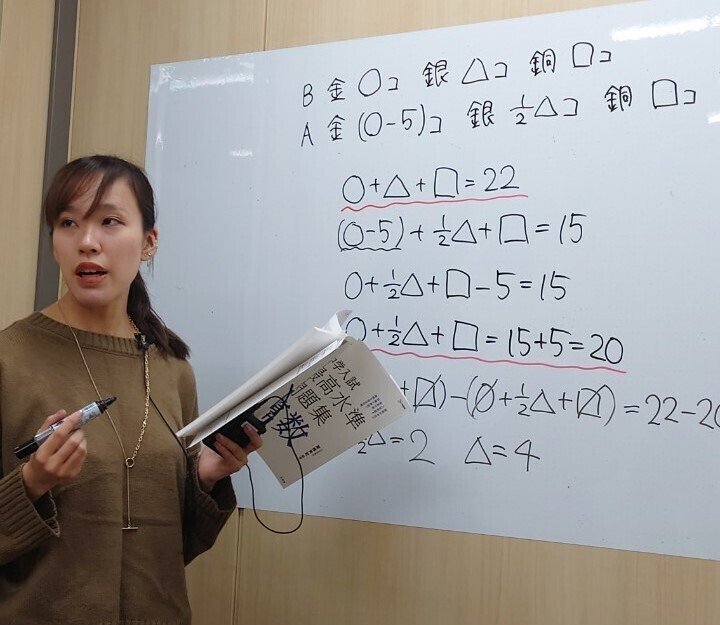 B 金 ○コ 銀 △コ 銅 □コ
A 金 (○-5)コ 銀 ½△コ 銅 □コ
○+△+□=22
(○-5)+½△+□=15
○+½△+□-5=15
○+½△+□=15+5=20
+□)-(○+½△+□)=22-20
½△=2 △=4
学入試
高水準
問題集
算数